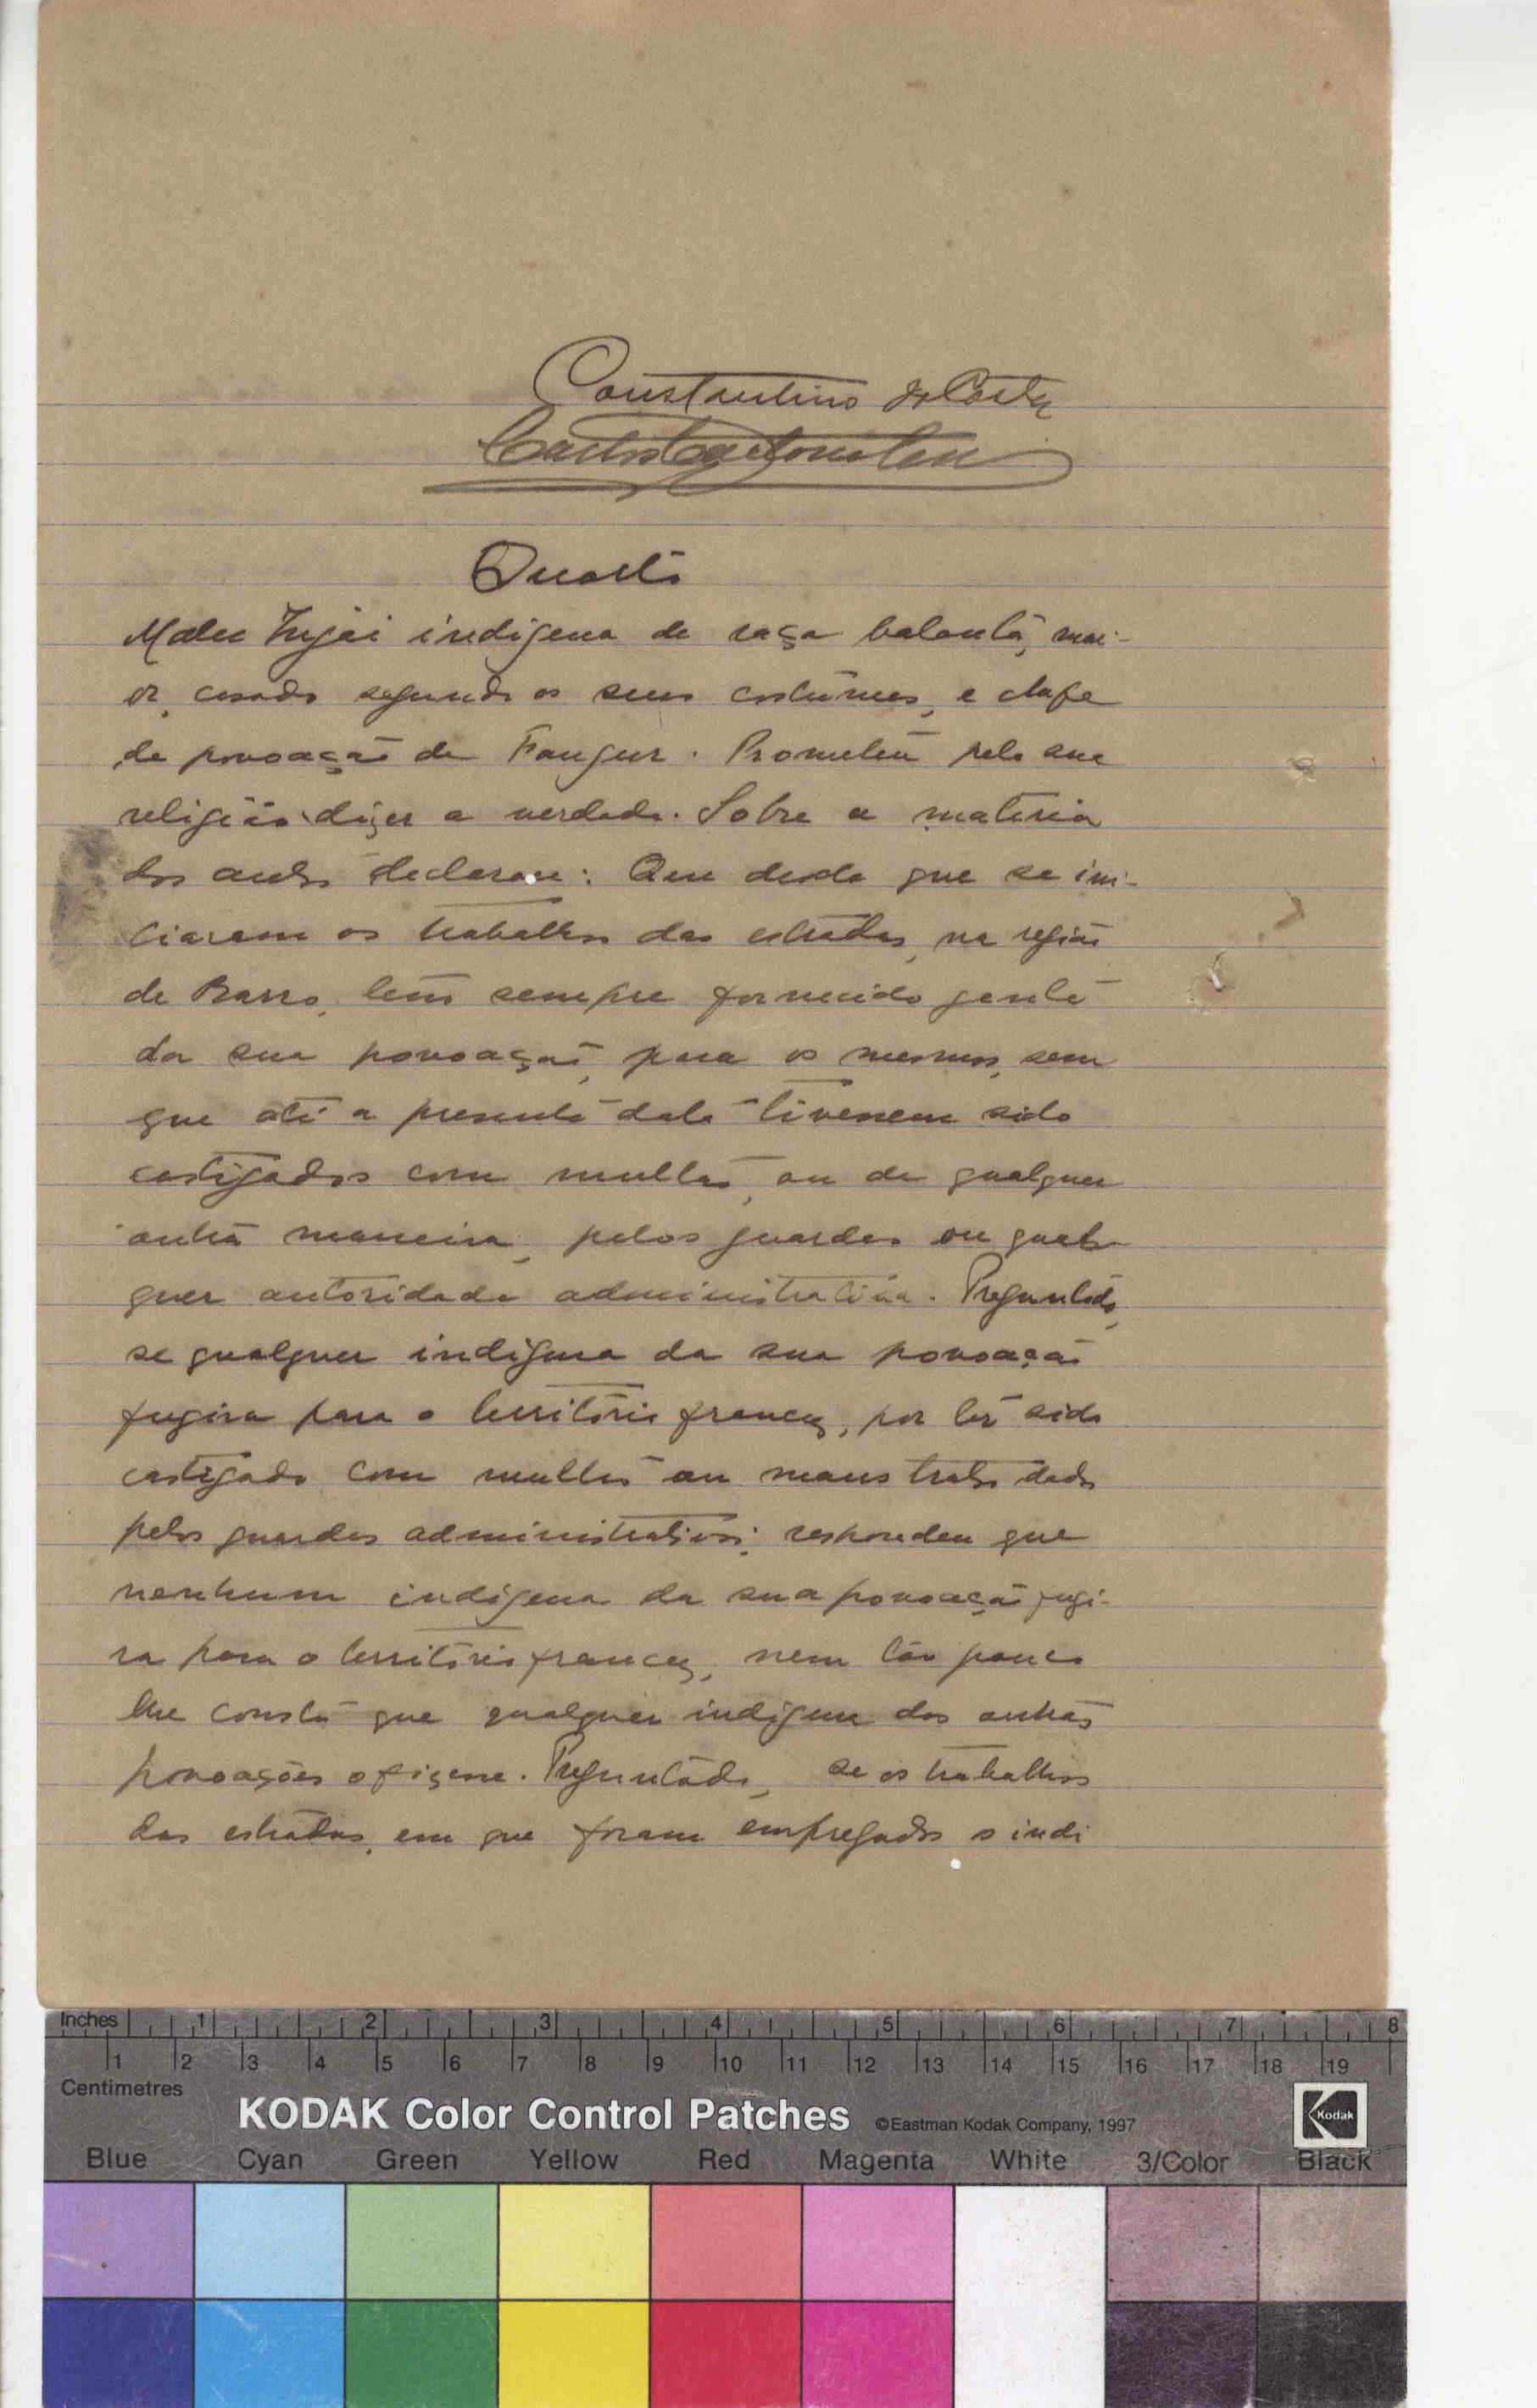 Constantino da Costa
Quarto
indigena de raça balanta, mai-
or, casado segundo os seus costumes, e chefe
de povoação de Fangur. Prometeu pela sua
religião dizer a verdade. Sobre a materia
dos autos declarou: Que desde que se ini-
ciaram os trabalhos das estradas, na região
de Barro, tem sempre fornecido gente
da sua povoação, para os mesmos, sem
que até a presente data tivessem sido
castigados com multas, ou de qualquer
outra maneira, pelos guardas ou qual-
quer autoridade administrativa. Preguntado,
se qualquer indigena da sua povoação
fugira para o território francez, por ter sido
castigado com multas ou maus tratos dados
pelos guardas administrativos; respondeu que
nenhum indigena da sua povoação fugi-
ra para o território francez, nem tão pouco
lhe consta que qualquer indigena das outras
povoações o fizesse. Preguntado, se os trabalhos
das estradas, em que foram empregados o indi
Inches 1 2 3 4 5 6 7 8
1 2 3 4 5 6 7 8 9 10 11 12 13 14 15 16 17 18 19
Centimetres
KODAK Color Control Patches ©Eastman Kodak Company, 1997 Kodak
Blue Cyan Green Yellow Red Magenta White 3/Color Black